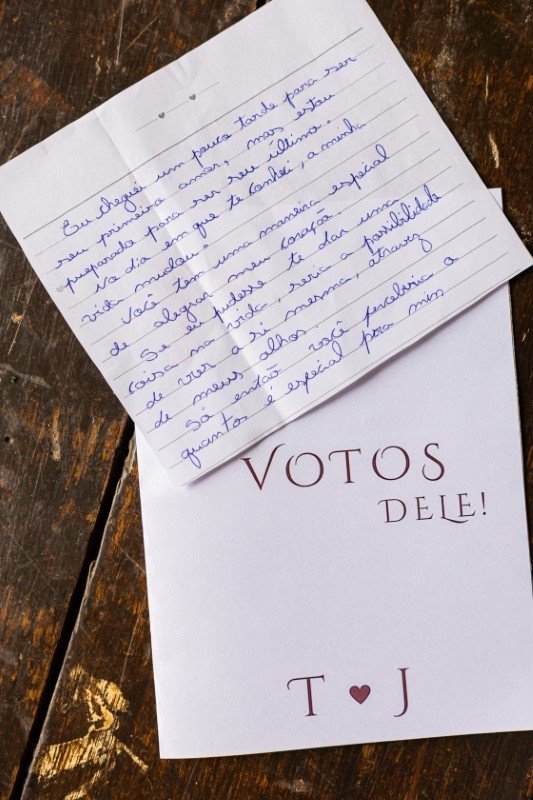 Eu cheguei um pouco tarde para ser
seu primeiro amor, mas estou
preparada para ser seu último.
No dia em que te conheci, a minha
vida mudou.
Você tem uma maneira especial
de alegrar meu coração.
Se eu pudesse te dar uma
coisa na vida, seria a possibilidade
de ver a si mesma, atravez
de meus olhos.
Só então você perceberia o
quantos é especial para mim
VOTOS
DELE!
T ♥ J